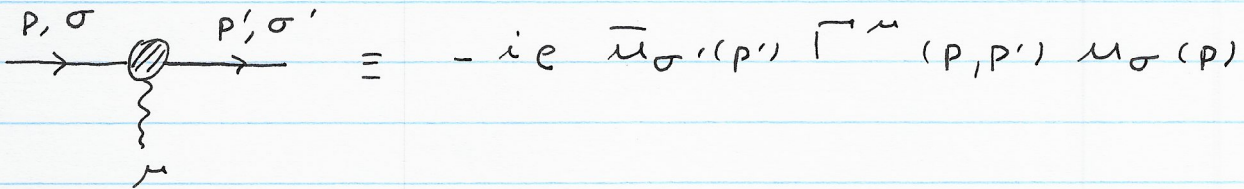 p, σ p', σ' ≡ - i e ū_σ'(p') Γ^μ (p, p') u_σ(p)
μ